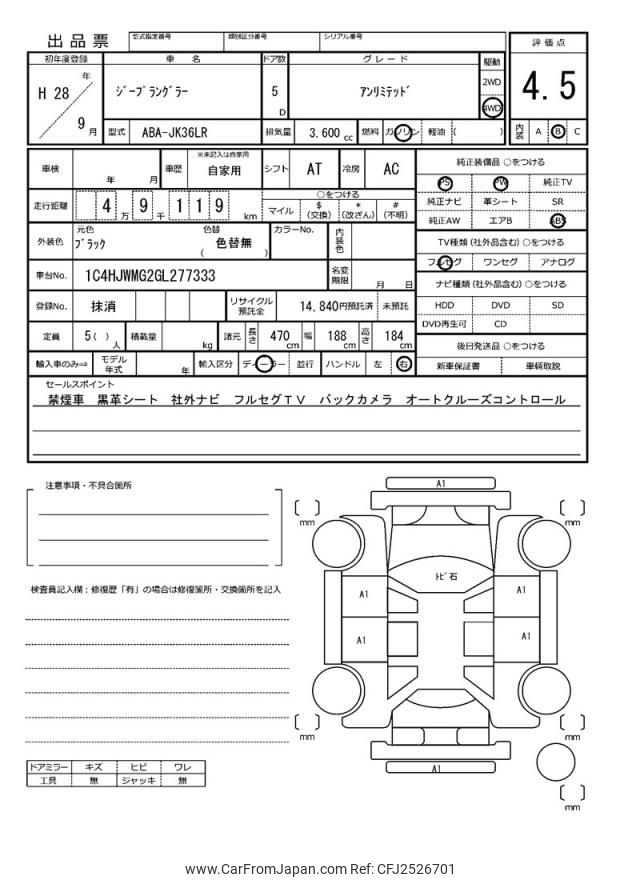 出品票
型式指定番号 類別区分番号 シリアル番号
評価点
初年度登録 車名 ドア数 グレード 駆動
年
H 28
9 月
ジープラングラー
5
D
アンリミテッド
2WD
4WD
4.5
型式 ABA-JK36LR 排気量 3,600 cc 燃料 ガソリン 軽油 ( )
内装 A B C
車検 年 月 車歴 ※未記入は自家用 自家用 シフト AT 冷房 AC
純正装備品 ○をつける
PS PW 純正TV
純正ナビ 革シート SR
純正AW エアB ABS
走行距離 4 万 9 千 1 1 9 km
○をつける
マイル $ (交換) * (改ざん) # (不明)
外装色 元色 ブラック 色替 ( 色替無 ) カラーNo. 内装色
TV種類 (社外品含む) ○をつける
フルセグ ワンセグ アナログ
車台No. 1C4HJWMG2GL277333 名変期限 月 日
ナビ種類 (社外品含む) ○をつける
HDD DVD SD
DVD再生可 CD
登録No. 抹消 リサイクル預託金 14,840円預託済 未預託
定員 5( ) 人 積載量 kg 諸元 長さ 470 cm 幅 188 cm 高さ 184 cm
後日発送品 ○をつける
新車保証書 車輌取説
輸入車のみ⇒ モデル年式 年 輸入区分 ディーラー 並行 ハンドル 左 右
セールスポイント
禁煙車 黒革シート 社外ナビ フルセグTV バックカメラ オートクルーズコントロール
注意事項・不具合箇所
検査員記入欄：修復歴「有」の場合は修復箇所・交換箇所を記入
A1
mm
mm
トビ石
A1
A1
A1
A1
mm
mm
A1
mm
ドアミラー キズ ヒビ ワレ
工具 無 ジャッキ 無
www.CarFromJapan.com Ref: CFJ2526701